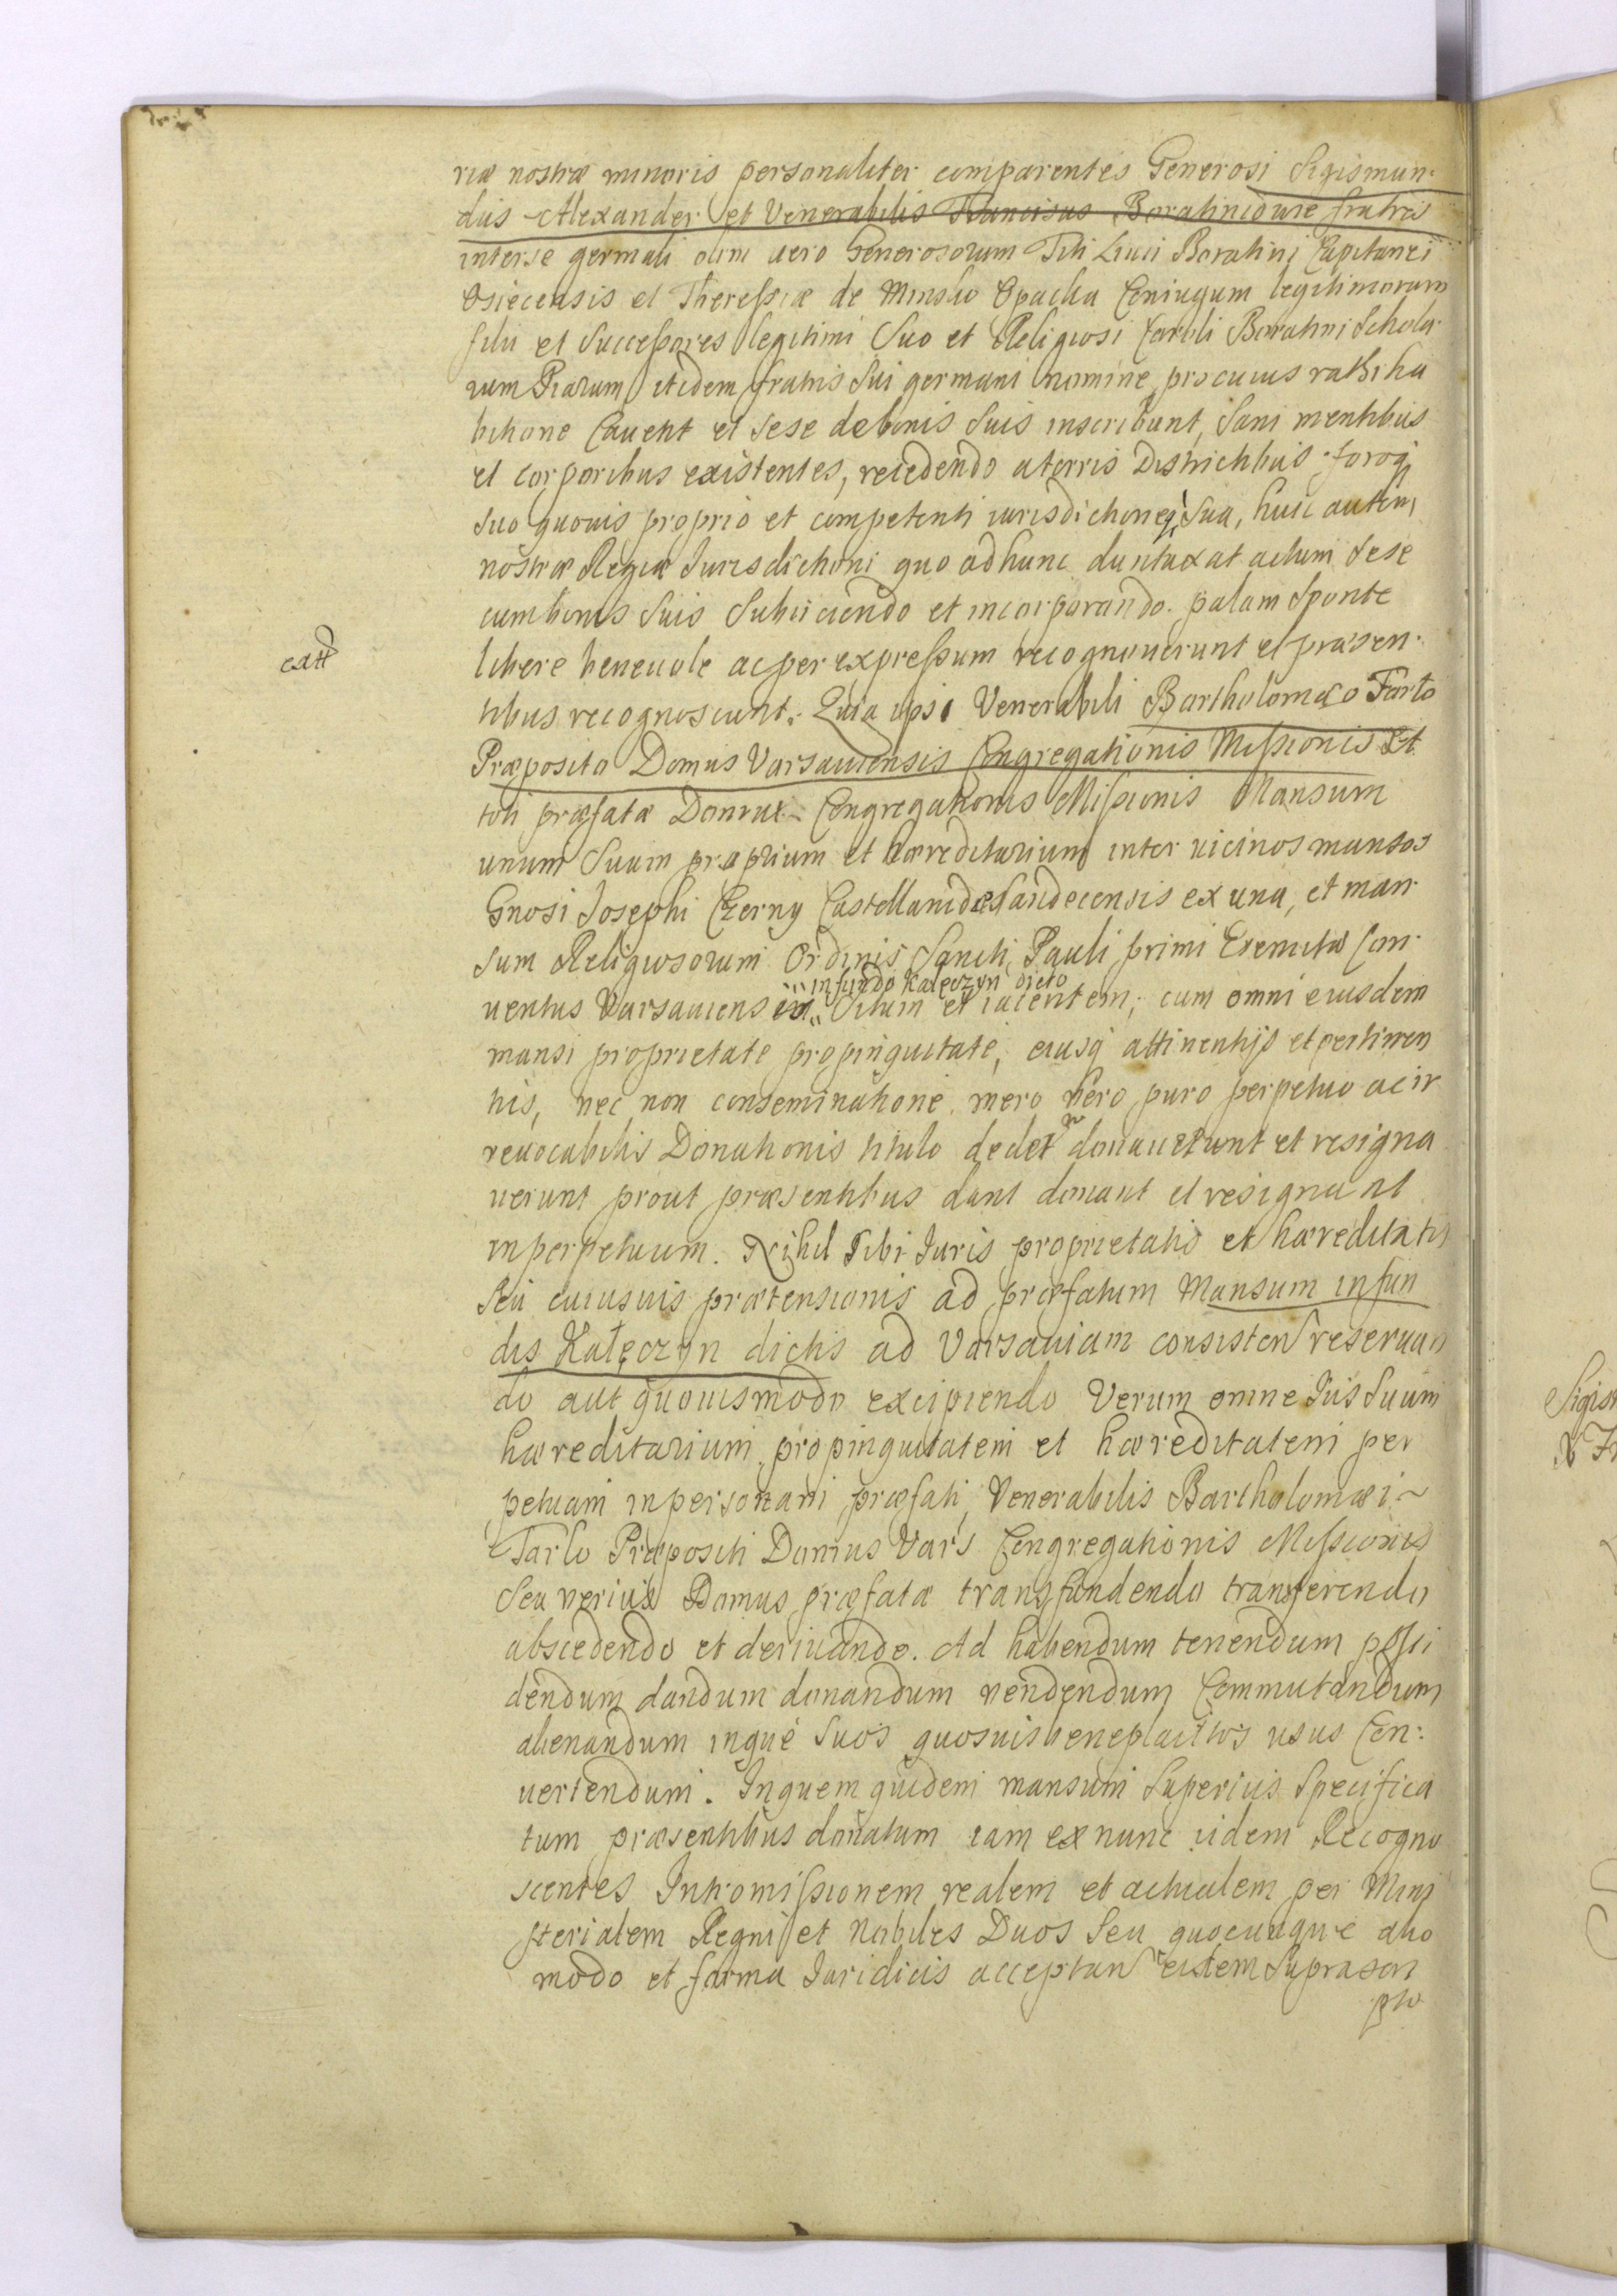 riæ nostræ minoris personaliter comparentes Generosi Sigismun-
dus Alexander et Venerabilis Franciscus Boratini duie fratres
interse germali olim uero Generosorum Titi Liuii Boratini Capitanei
Osiecensis et Theressiæ de Minsko Opacka Coniugum legitimorum
filii et Successores legitimi Suo et Religiosi Caroli Boratini Schola-
rum Piarum itidem fratris Sui germani nomine, pro cuius rathiha
bitione Cauent et sese de bonis Suis inscribunt, Sani mentibus
et corporibus existentes, recedendo a terris Districtibus foroq
suo quouis proprio et competenti iurisdictioneq Sua, huic autem
nostræ Regiæ Jurisdictioni quo ad hunc duntaxat actum sese
cum bonis Suis Subiiciendo et incorporando. palam sponte
libere beneuole ac per expressum recognouerunt et præsen-
tibus recognoscunt. Quia ipsi Venerabili Bartholomæo Tarlo
Præposito Domus Varsauiensis Congregationis Missionis Et
toti præfatæ Domui Congregationis Missionis Mansum
unum Suum proprium et hæreditarium inter uicinos mansos
Gnosi Josephi Czerny Castellani Sandecensis ex una, et man-
sum Religiosorum Ordinis Sancti Pauli primi Eremitæ Con-
in fundo Kałęczyn dicto
uentus Varsauiens Situm et iacentem; cum omni eiusdem
mansi proprietate propinquitate, eiusq attinentijs et pertinen
tis, nec non conseminatione mero vero puro perpetuo ac ir
reuocabilis Donationis titulo dedet donauerunt et resigna
uerunt prout præsentibus dant donant et resignant
inperpetuum. Nihil Sibi Juris proprietatis et hæreditatis
Seu cuiusuis prætensionis ad præfatum Mansum in fun
dis Kałęczyn dictis ad Varsauiam consisten reseruan
do aut quouismodo excipiendo Verum omne Jus Suum
hæreditarium, propinquitatem et hæreditatem per
petuam in personam præfati Venerabilis Bartholomæi
Tarlo Præpositi Domus Vars Congregationis Missionis
Seu verius Domus præfatæ transfundendo transferendo
abscedendo et deriuando. Ad habendum tenendum possi
dendum dandum donandum vendendum Commutandum
alienandum inque suos quosuis beneplacitos usus Con-
uertendum. Inquem quidem mansum Superius Specifica
tum præsentibus donatum iam ex nunc iidem Recogno
scentes Intromissionem realem et actualem per Mini
sterialem Regni et Nobiles Duos Seu quocunque alio
modo et forma Juridicis acceptan eidem Suprascri
pto
catt
Sigis